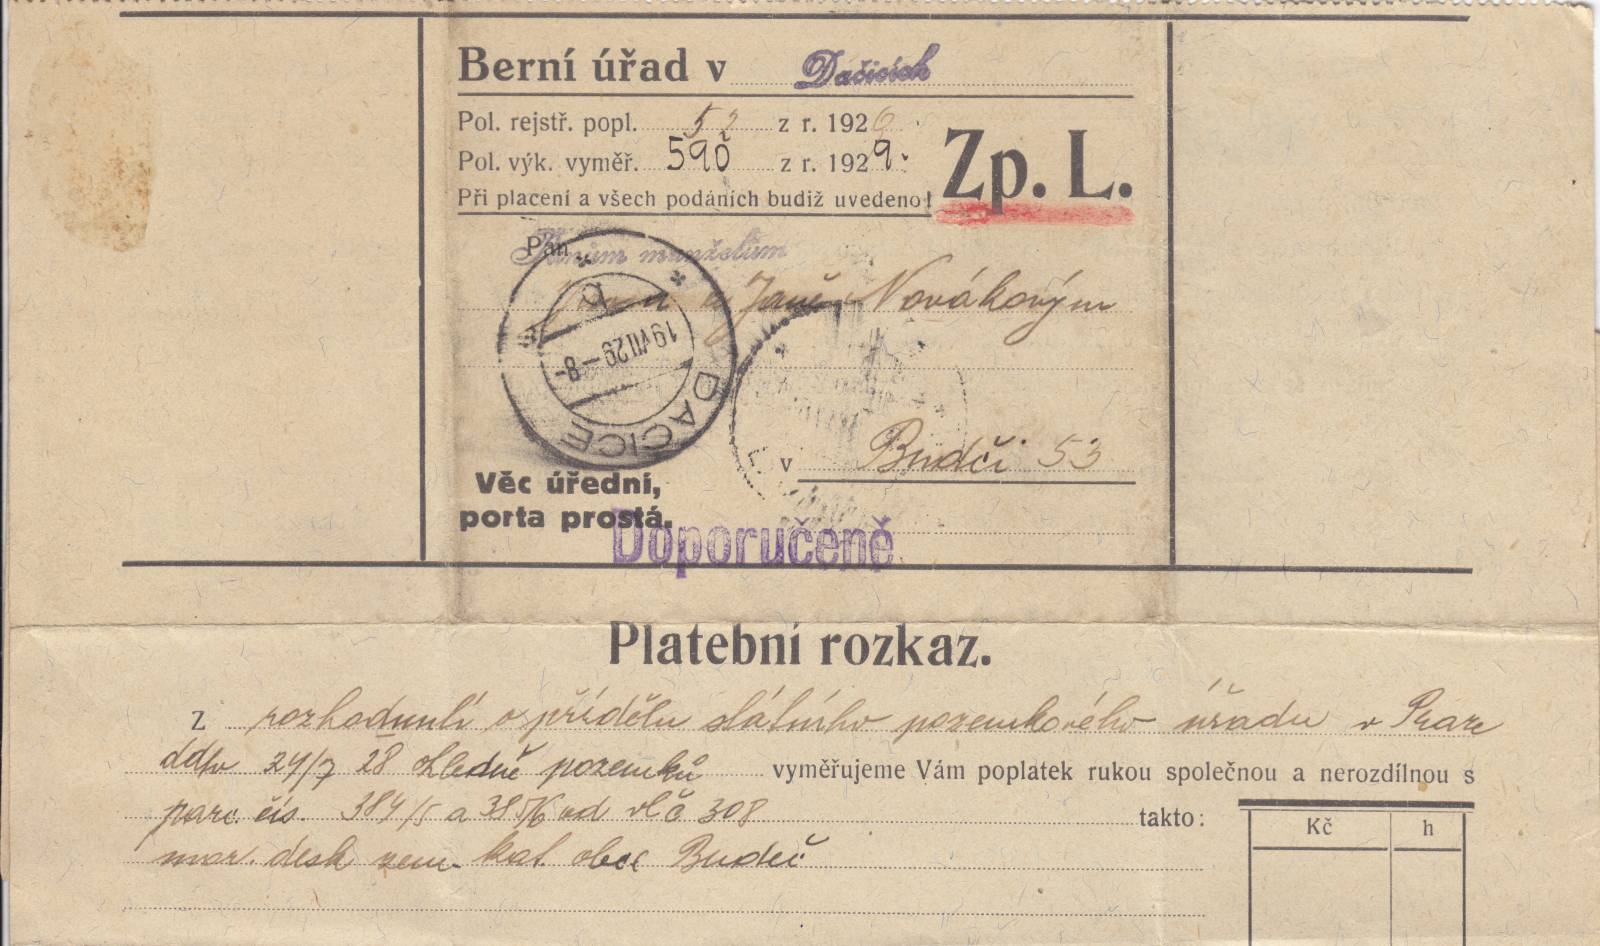 Berní úřad v Dačicích
Pol. rejstř. popl. 52 z r. 1926
Pol. výk. vyměř. 590 z r. 1929.
Při placení a všech podáních budiž uvedeno!
Zp. L.
Pan
Pánům manželům
a Janě Novákovým
DAČICE
19 VII 29 - 8-
v Budči 53
Věc úřední,
porta prostá.
Doporučeně
Platební rozkaz.
Z rozhodnutí o přídělu státního pozemkového úřadu v Praze
ddto 24/7 28 ohledně pozemků vyměřujeme Vám poplatek rukou společnou a nerozdílnou s
parc. čís. 384/5 a 385/6 od vl č 308 takto:
Kč h
mor. desk zem. kat. obce Budeč